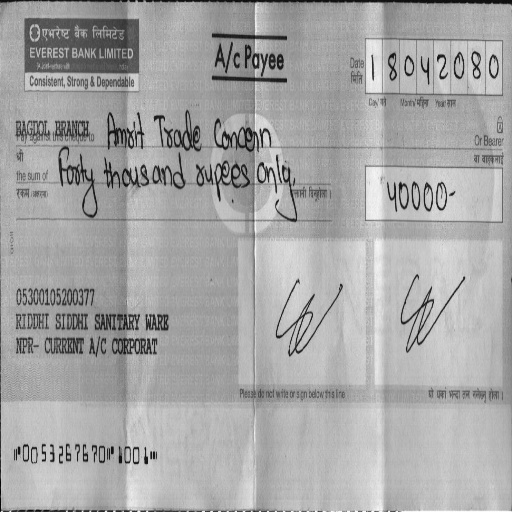 एभरेष्ट बैंक लिमिटेड
EVEREST BANK LIMITED
Consistent, Strong & Dependable
A/c Payee
Date
मिति
18042080
Day/ Month/ Year/
BAGDOL BRANCH Amrit Trade Concern
Or Bearer
श्री
the sum of Forty thousand rupees only,
40000-
05300105200377
RIDDHI SIDDHI SANITARY WARE
NPR- CURRENT A/C CORPORAT
Please do not write or sign below this line
⑈0053267670⑈1001⑈